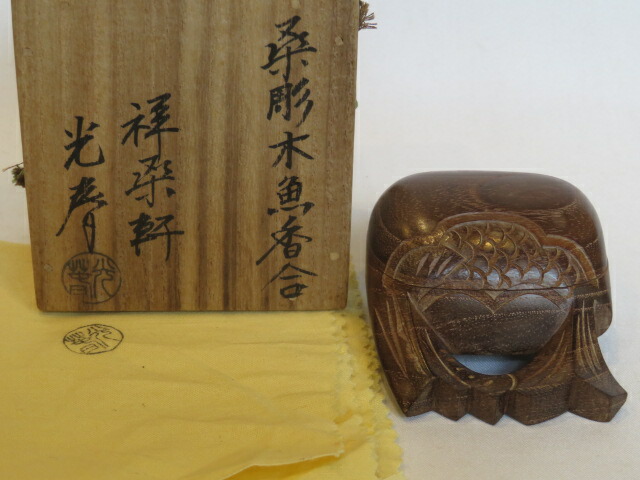 桑彫木魚香合
祥桑軒
光斎